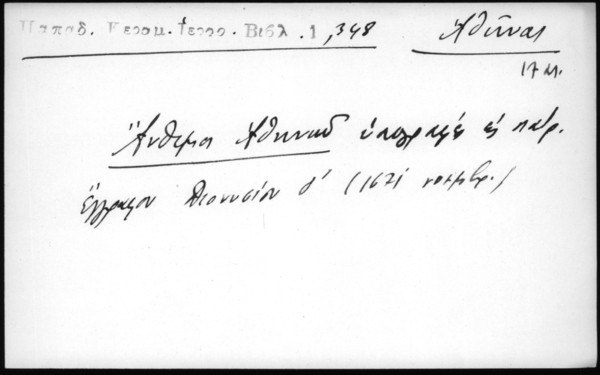 Παπαδ. Κεραμ. Ἱερος. Βιβλ. 1,348
Ἀθῆναι
17 αἰ.
Ἄνθιμος Ἀθηνῶν ὑπογραφὴ εἰς πατρ.
ἔγγραφον Διονυσίου δ' (1671 νοεμβρ.)